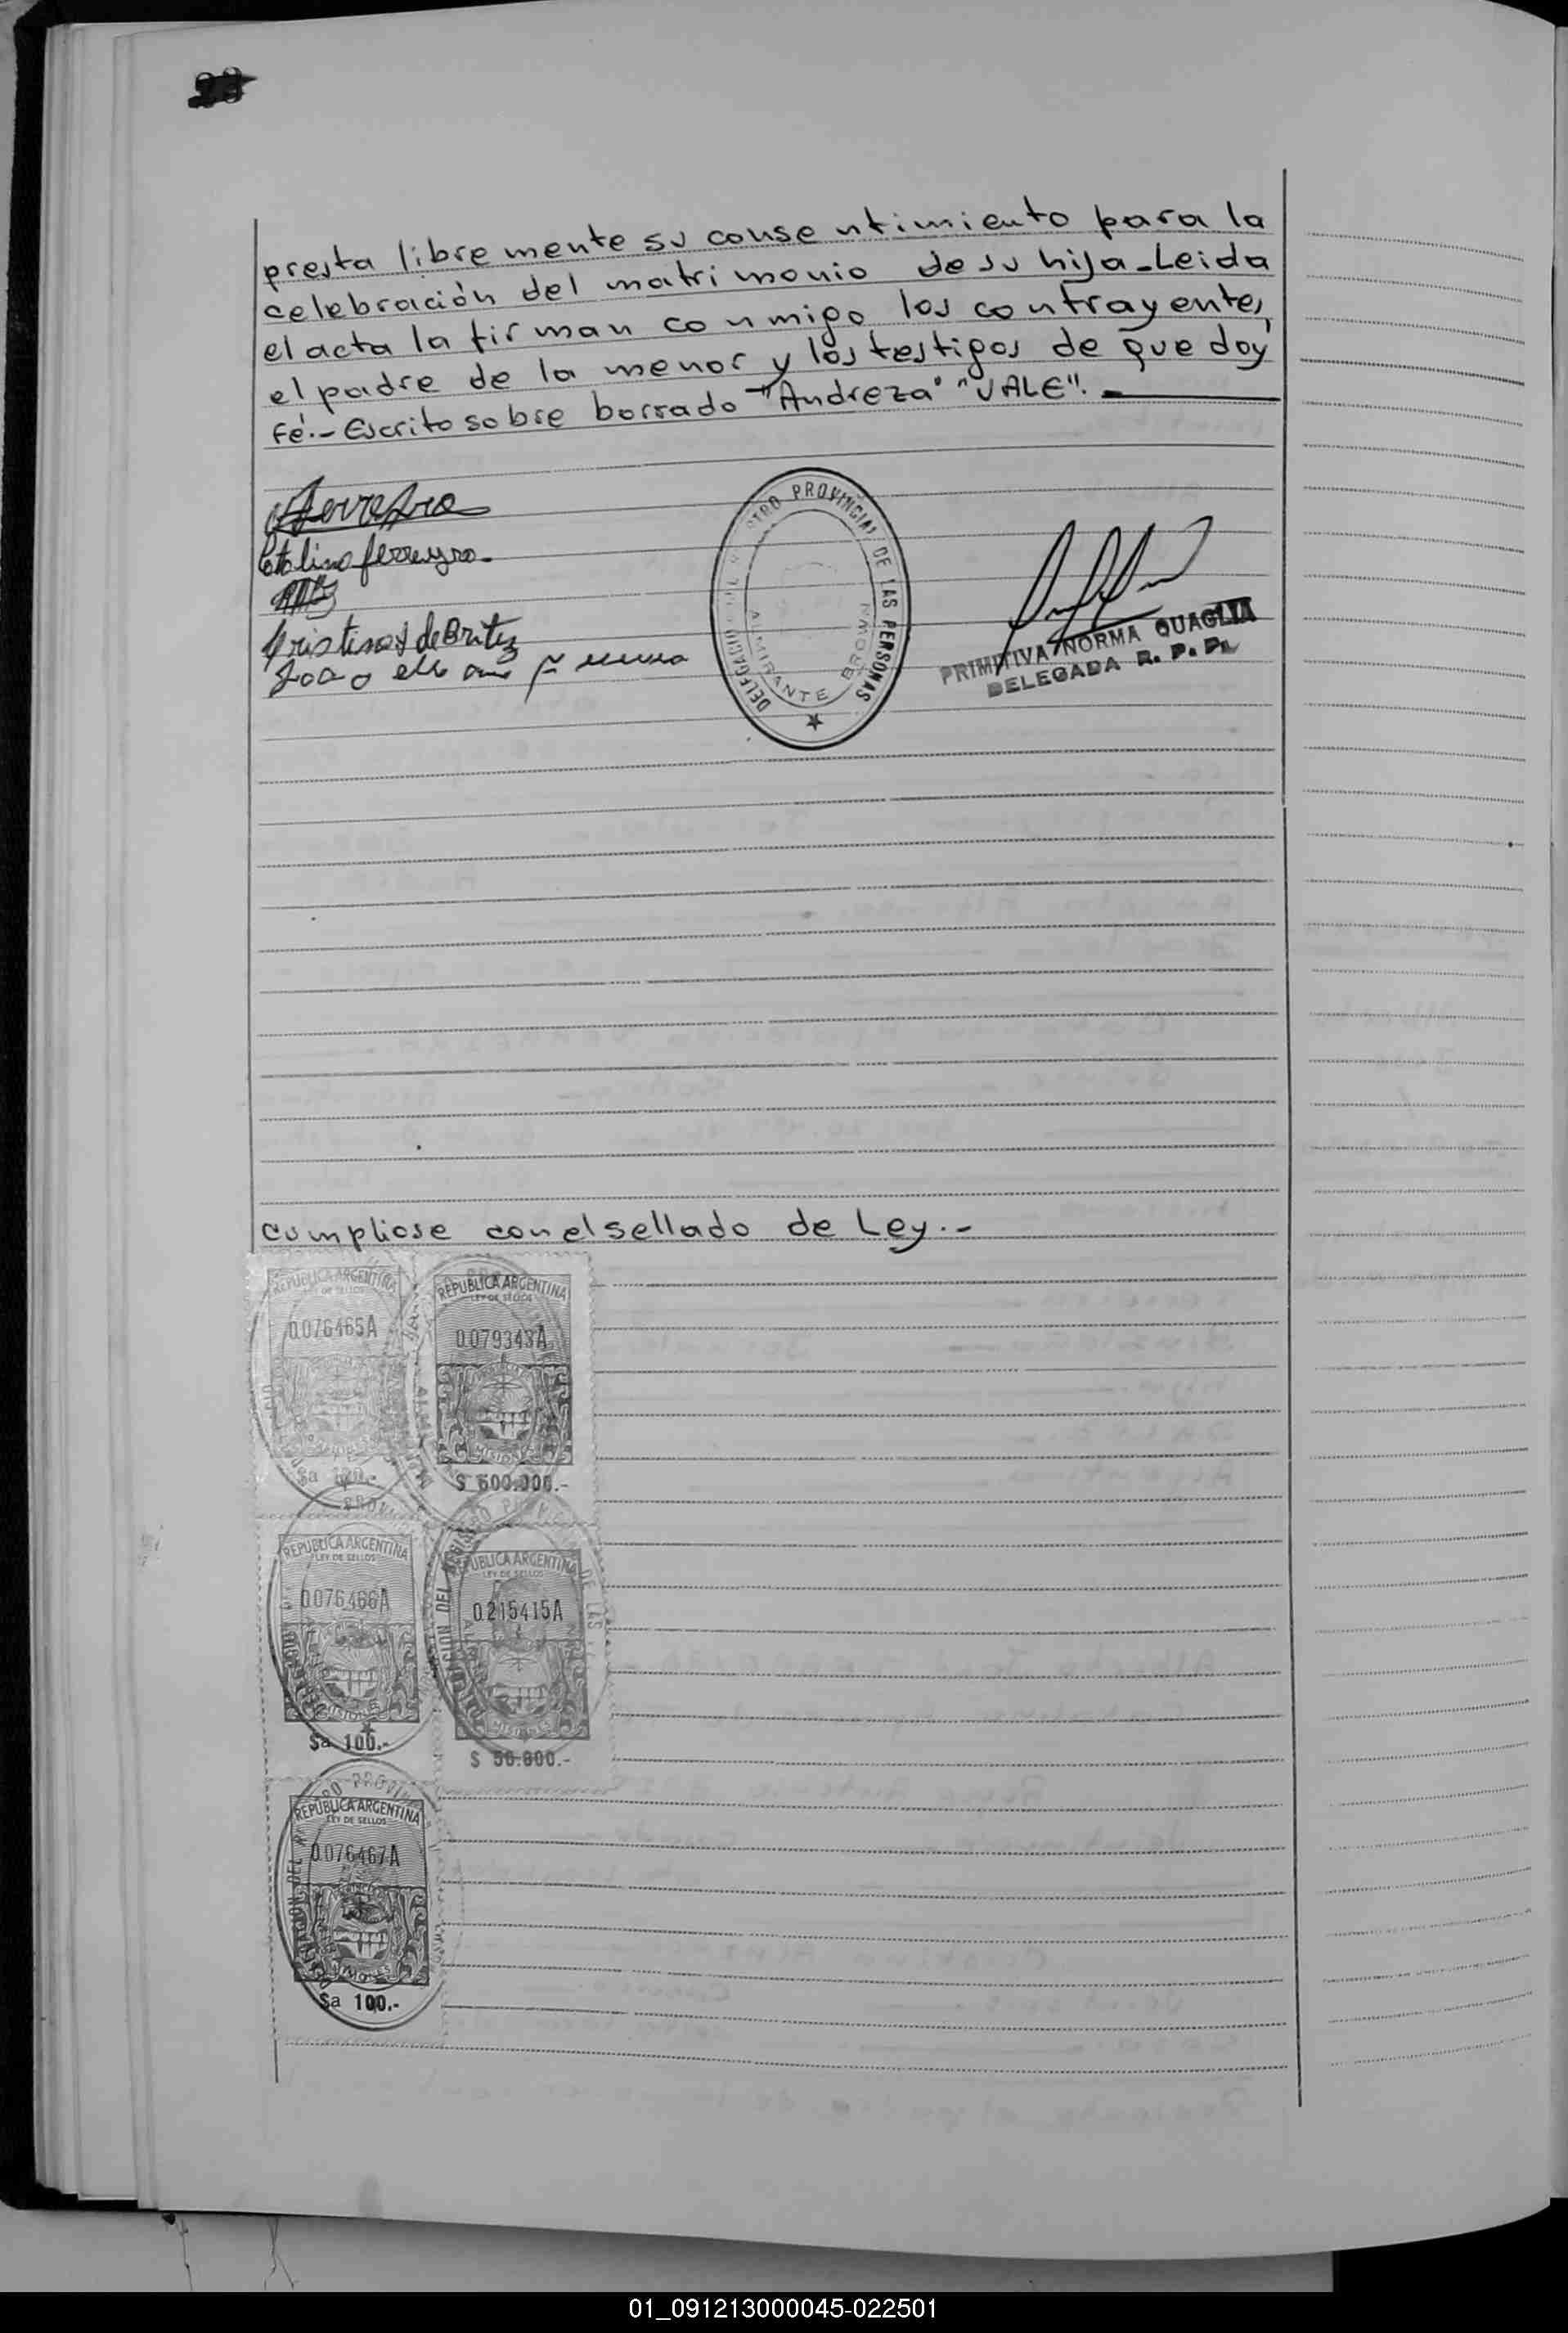 presta libremente su consentimiento para la
celebración del matrimonio de su hija-Leida
el acta la firman conmigo los contrayentes,
el padre de la menor y los testigos de que doy
Fé.- Escrito sobre borrado "Andreza" "VALE".-
Catalina ferreyra.-
Cristina A de Britez
DELEGACION DEL REGISTRO PROVINCIAL DE LAS PERSONAS
ALMIRANTE BROWN
PRIMITIVA NORMA QUAGLIA
DELEGADA R. P. P.
Cumpliose con el sellado de Ley.-
REPUBLICA ARGENTINA
LEY DE SELLOS
0.076465A
MISIONES
$a
REPUBLICA ARGENTINA
LEY DE SELLOS
0.079343A
MISIONES
$ 500.000.-
REPUBLICA ARGENTINA
LEY DE SELLOS
0.076466A
MISIONES
$a 100.-
REPUBLICA ARGENTINA
LEY DE SELLOS
0.215415A
MISIONES
$ 50.000.-
REPUBLICA ARGENTINA
LEY DE SELLOS
0.076467A
MISIONES
$a 100.-
01_091213000045-022501